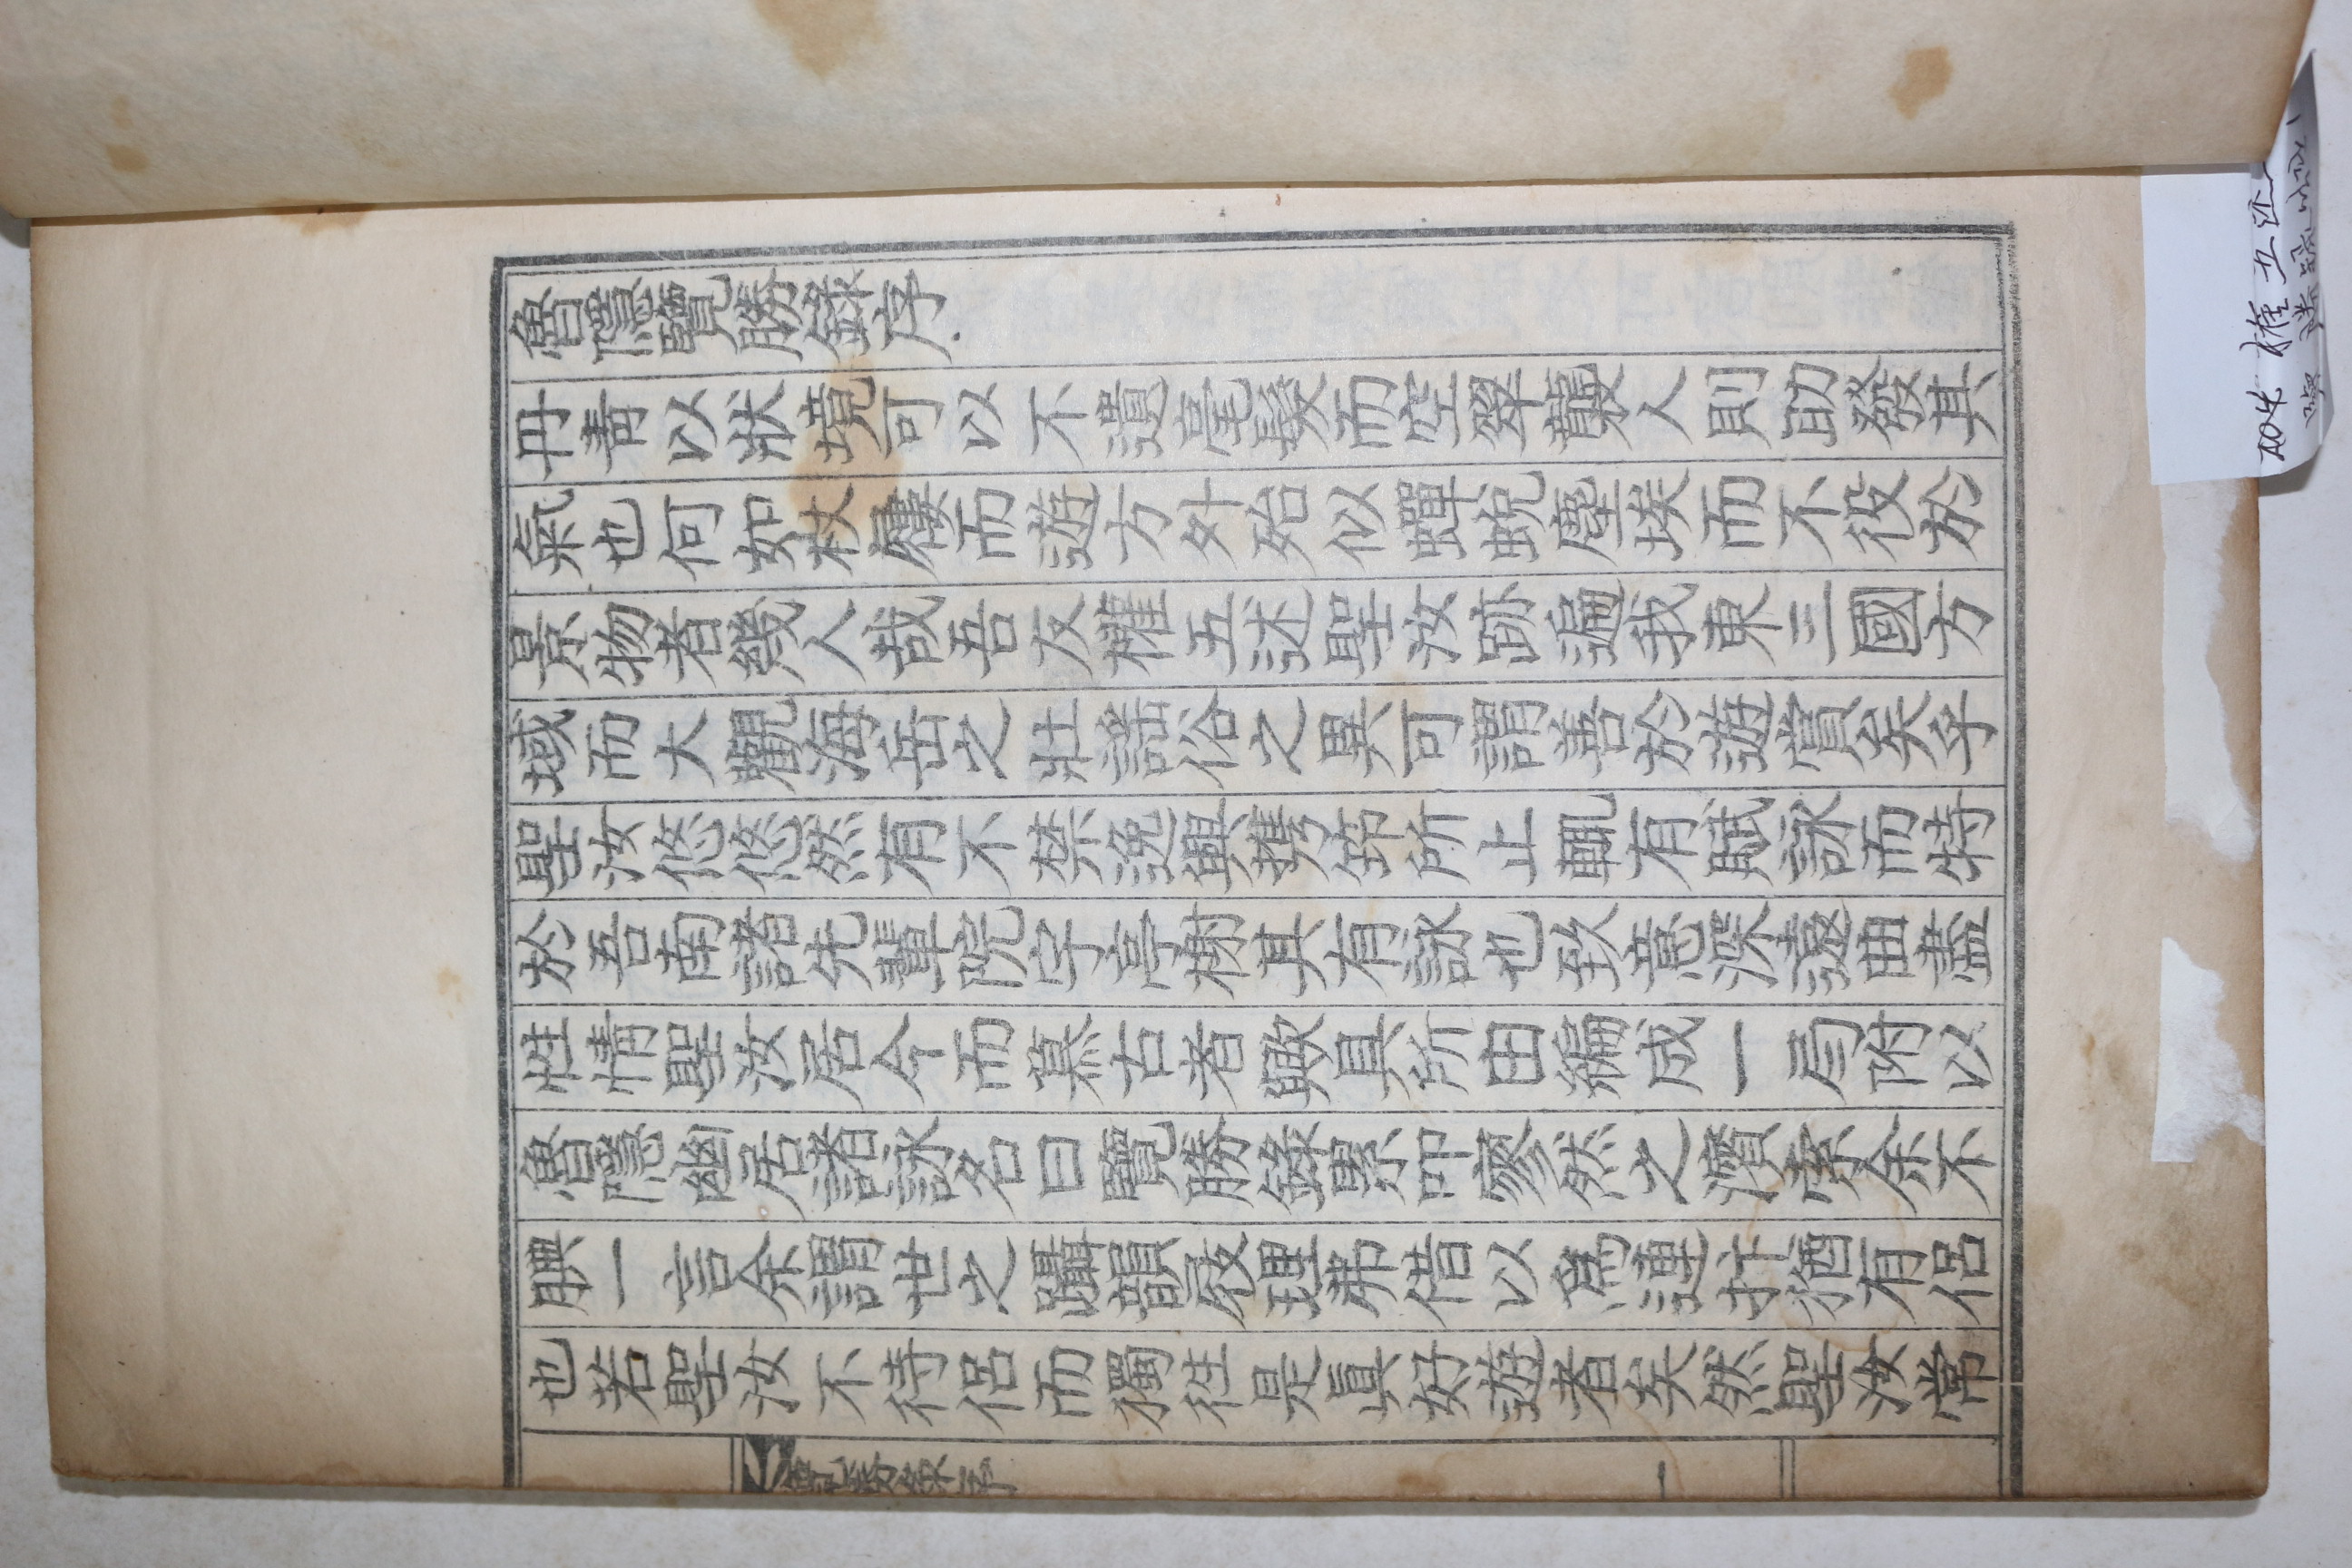 魯隱覽勝錄序
丹靑以狀境可以不遺毫髮而空翠襲人則助發其
氣也何如杖屨而遊方外殆似蟬蛻塵埃而不役於
景物者幾人哉吾友權五述聖汝跡遍我東三國方
域而大觀海岳之壯謠俗之異可謂善於遊賞矣乎
聖汝悠悠然有不禁逸興携筇所止輒有賦詠而特
於吾南諸先輩院宇亭榭其有詠也致意深遠曲盡
性情聖汝居今而慕古者歟具所由編成一局附以
魯隱幽居諸詠名曰覽勝錄累叩寥然之濱索余不
腆一言余謂世之躡韻屐理弗借以爲連抃猶有侶
也若聖汝不待侶而獨往是眞好遊者矣然聖汝常
覽勝錄序
一
權五述